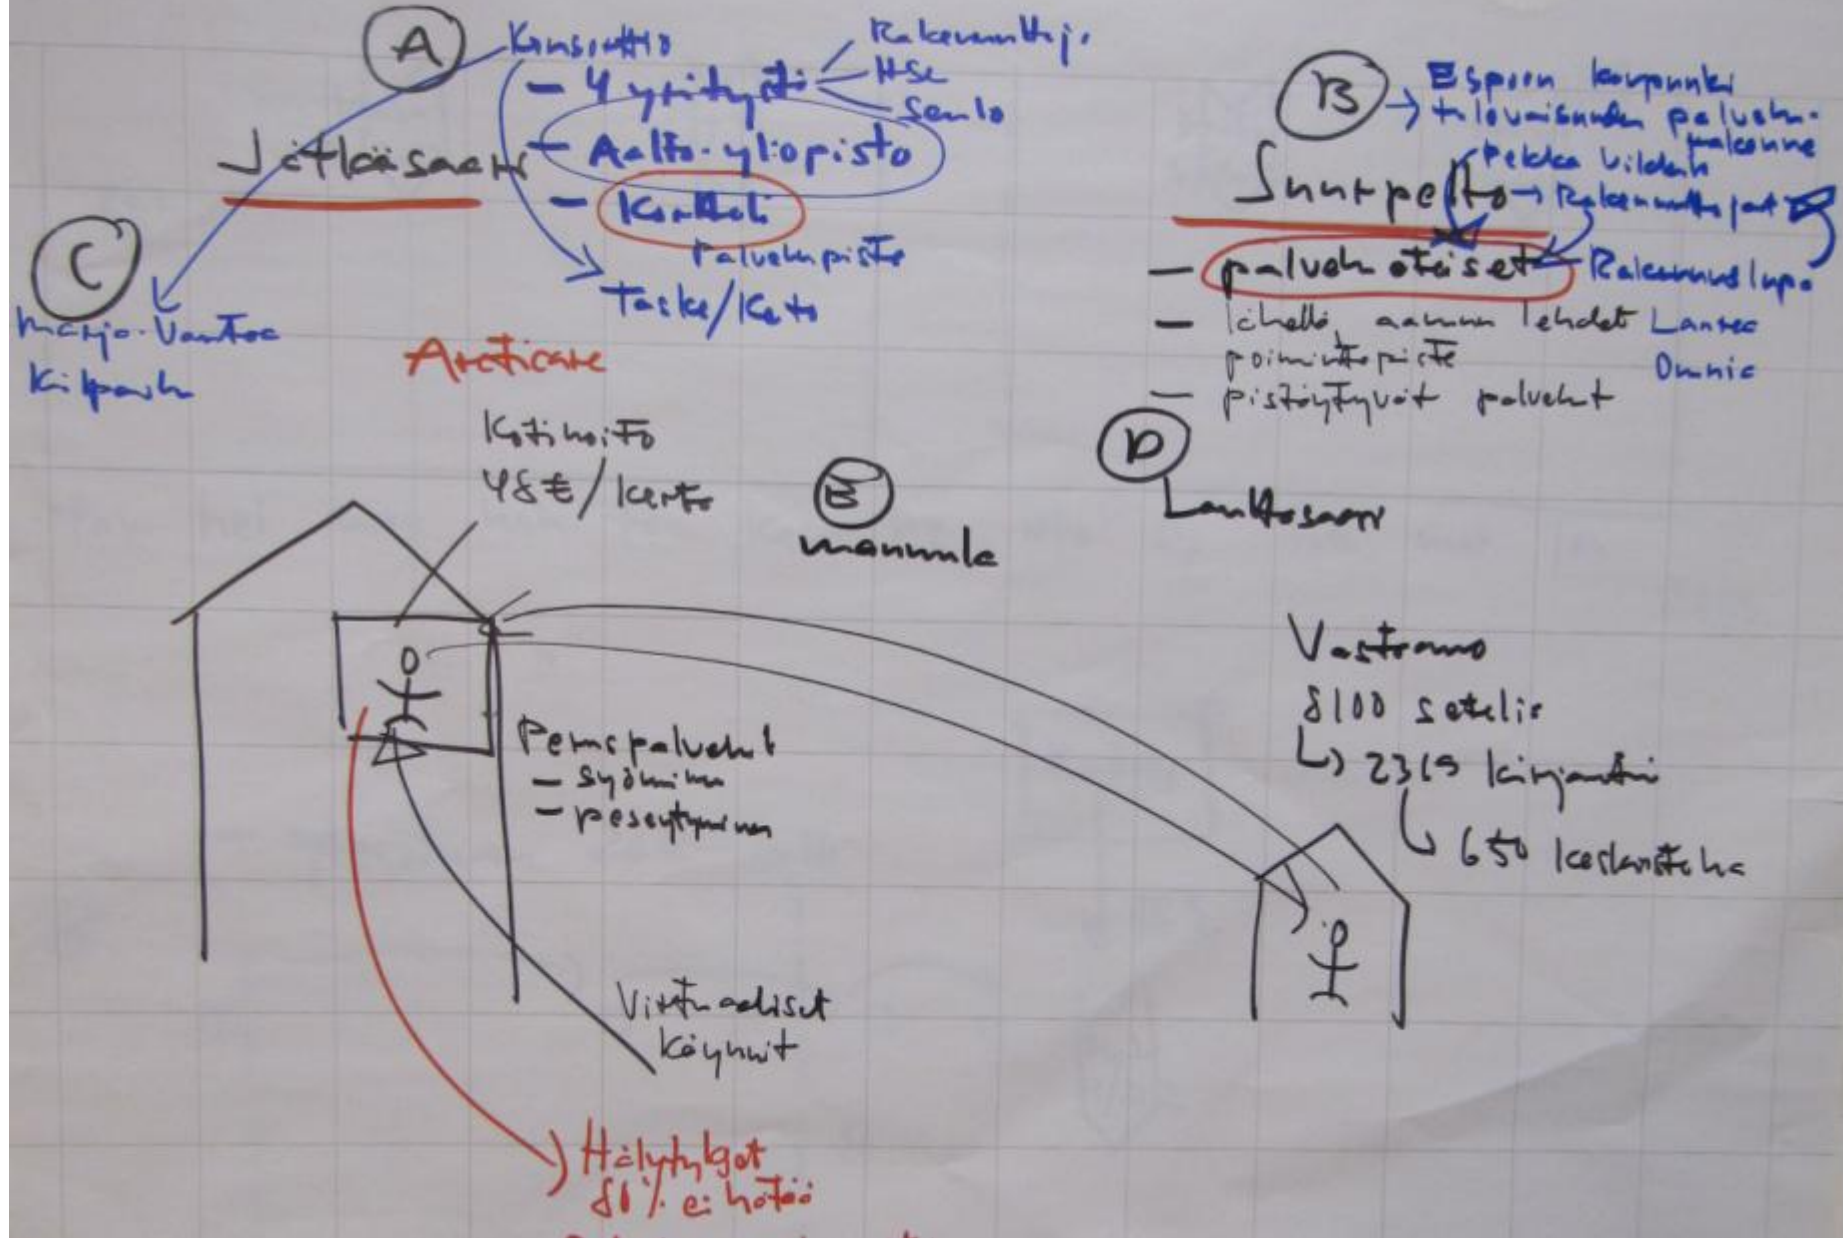 A
Konsortio
- 4 yritystä
Rakennuttaja
HSE
Senlo
Jätkäsaari
- Aalto-yliopisto
- Kortteli
Palvelupiste
Taske/Keto
C
Marja-Vantaa
Kilpailu
Arcticare
B
Espoon kaupunki
tulevaisuuden palvelu-
rakenne
Pekka
Suurpelto
Rakennuttajat
- palvelu
Rakennuslupa
- lähellä, aamun lehdet
poimintapiste
- pistäytyvät palvelut
Laurea
Omnia
Kotihoito
48 €/kerta
E
Maunula
D
Lauttasaari
Vastaanotto
8100 seteliä
2319 kirjattiin
650
Peruspalvelut
- syöminen
- peseytyminen
Virtuaaliset
käynnit
Hälytykset
80% ei hätää